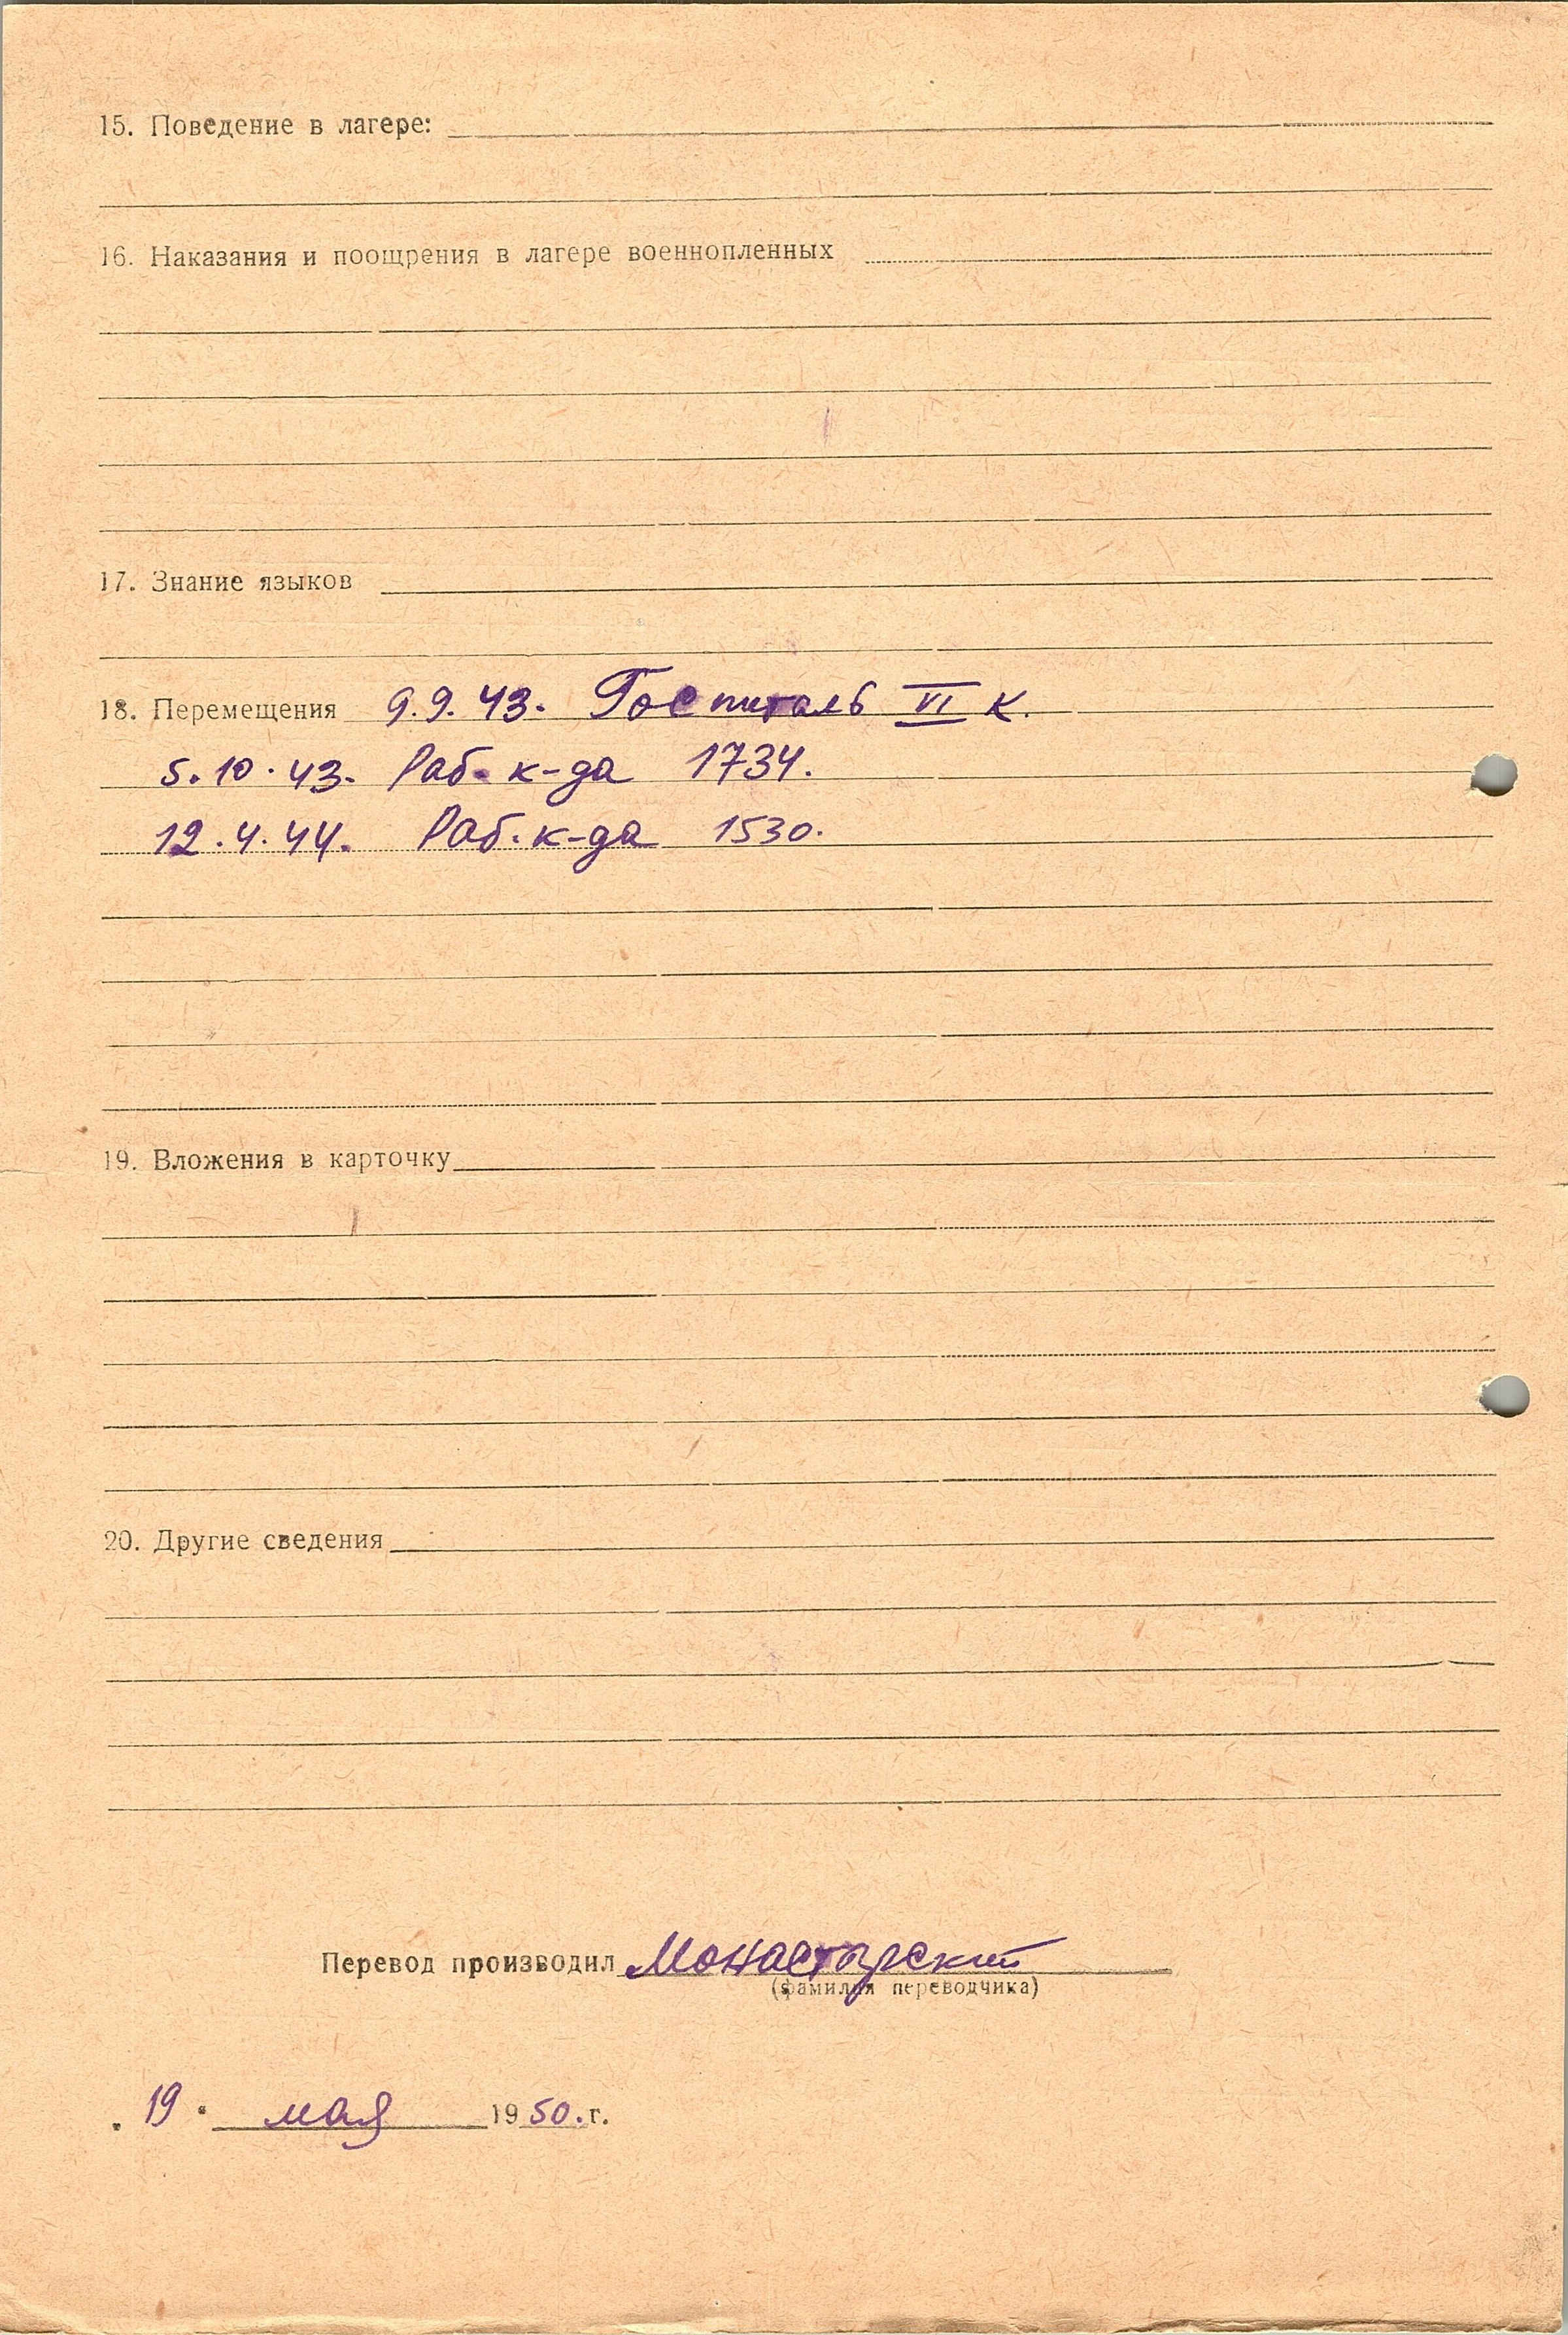 15. Поведение в лагере:
16. Наказания и поощрения в лагере военнопленных
17. Знание языков
18. Перемещения 9.9.43. Госпиталь VI К.
5.10.43. Раб. к-да 1734.
12.4.44. Раб. к-да 1530.
19. Вложения в карточку
20. Другие сведения
Перевод производил Монастырский
(фамилия переводчика)
„ 19 “ мая 1950. г.